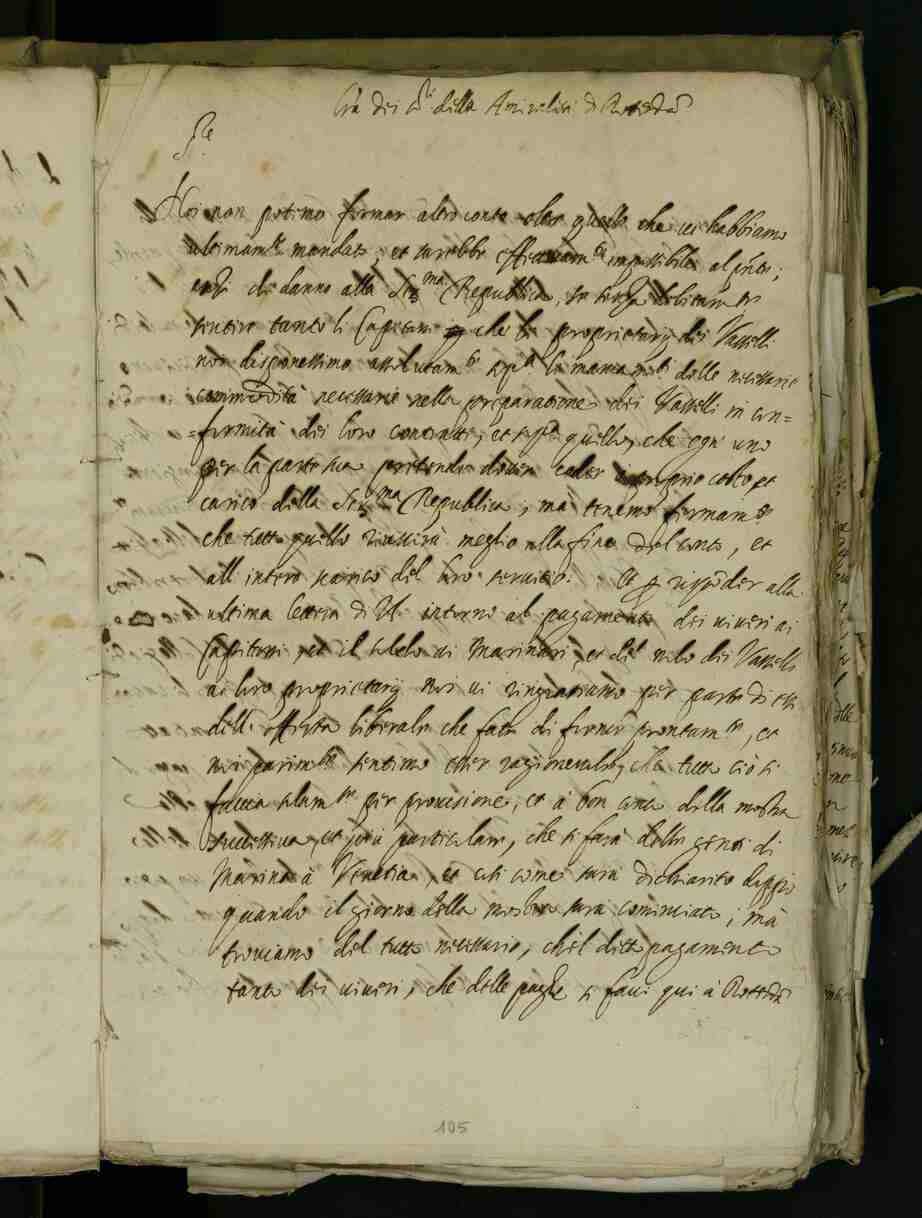 Lra dei S.ri della Amiralità di Roterdam
Noi non potemo formar altro conto che quello che vi habbiamo
ultimamte mandato, et sarebbe effettivamte impossibile al pnte;
anzi di danno alla Serma Republica,
sentire tanto li Capitani che li proprietarij dei Vasselli
non disponessimo assolutamte delle necessarie
commodità necessarie nella preparatione dei Vasselli in con=
=formità dei loro contratti, et quello, che ogni uno
per la parte sua pretende dover a proprio costo et
carico della Serma Republica, mà tenemo fermamte
che tutto quello riuscirà meglio alla fine del conto, et
all intero scarico del loro servitio. Et p rispōder alla
ultima lettera di V. intorno al pagamento dei viveri ai
Capitani, et il soldo ai Marinari, et del nolo dei Vasselli
ai loro proprietarij noi vi ringratiamo per parte di essi
dell' offerta liberale che fate di fornir prontamte, et
noi parimte sentimo esser ragionevole, che tutto ciò si
faccia solamte per provisione, et à bon conto della mostra
successiva, et particolare, che si farà delle genti di
Marina à Venetia, et così come sarà dichiarito doppo
quando il giorno della mostra sarà cominciato, mà
troviamo del tutto necessario, ch'el ditto pagamento
tanto dei viveri, che delle paghe si facci qui à Roterdam
105